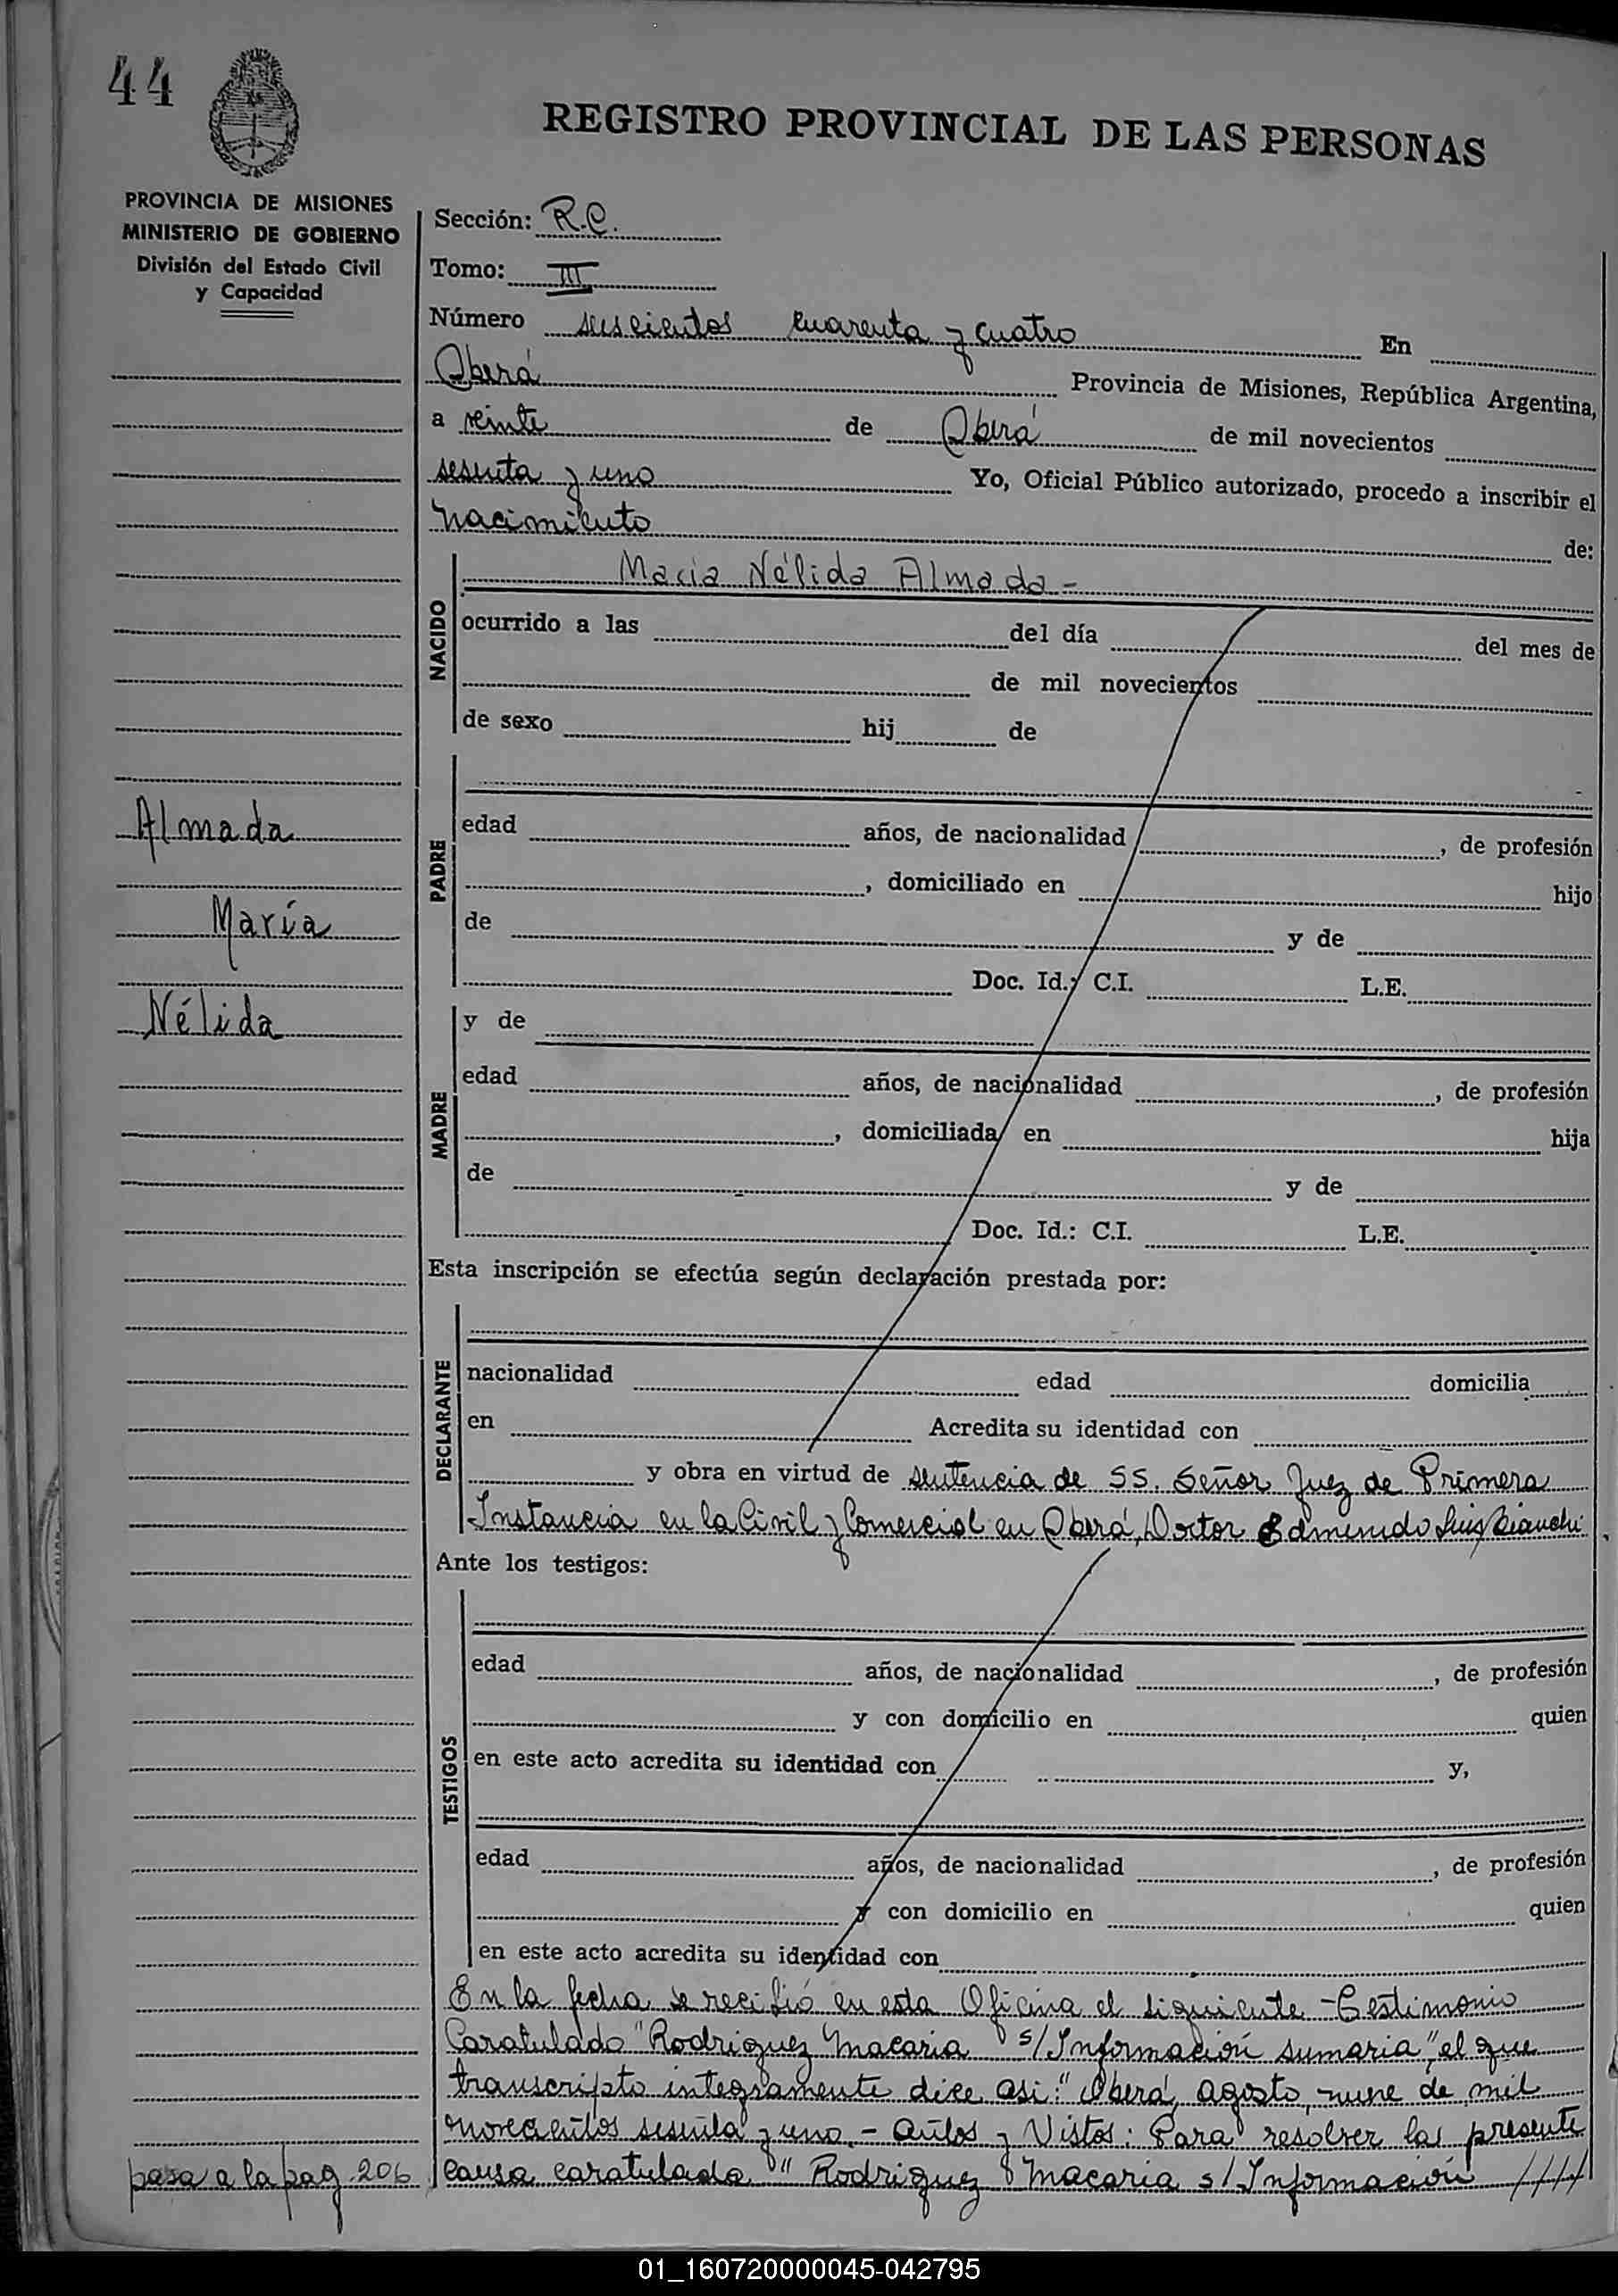 44
REGISTRO PROVINCIAL DE LAS PERSONAS
PROVINCIA DE MISIONES
MINISTERIO DE GOBIERNO
División del Estado Civil
y Capacidad
Almada
María
Nélida
Sección: R.C.
Tomo: III
Número seiscientos cuarenta y cuatro En
Oberá Provincia de Misiones, República Argentina,
a veinte de Oberá de mil novecientos
sesenta y uno Yo, Oficial Público autorizado, procedo a inscribir el
nacimiento de:
NACIDO
María Nélida Almada -
ocurrido a las del día del mes de
de mil novecientos
de sexo hij de
PADRE
edad años, de nacionalidad , de profesión
, domiciliado en hijo
de y de
Doc. Id.: C.I. L.E.
MADRE
y de
edad años, de nacionalidad , de profesión
, domiciliada en hija
de y de
Doc. Id.: C.I. L.E.
Esta inscripción se efectúa según declaración prestada por:
DECLARANTE
nacionalidad edad domicilia
en Acredita su identidad con
y obra en virtud de sentencia de SS. Señor Juez de Primera
Instancia en la Civil y Comercial en Oberá, Doctor Edmundo Luis Bianchi
Ante los testigos:
TESTIGOS
edad años, de nacionalidad , de profesión
y con domicilio en quien
en este acto acredita su identidad con y,
edad años, de nacionalidad , de profesión
y con domicilio en quien
en este acto acredita su identidad con
En la fecha se recibió en esta Oficina el siguiente - Testimonio
Caratulado "Rodriguez Macaria s/Información sumaria", el que
transcripto integramente dice asi: "Oberá, agosto, nueve de mil
novecientos sesenta y uno. - Autos y Vistos: Para resolver las presente
causa caratulada " Rodriguez Macaria s/Información ////
pasa a la pag. 206
01_160720000045-042795